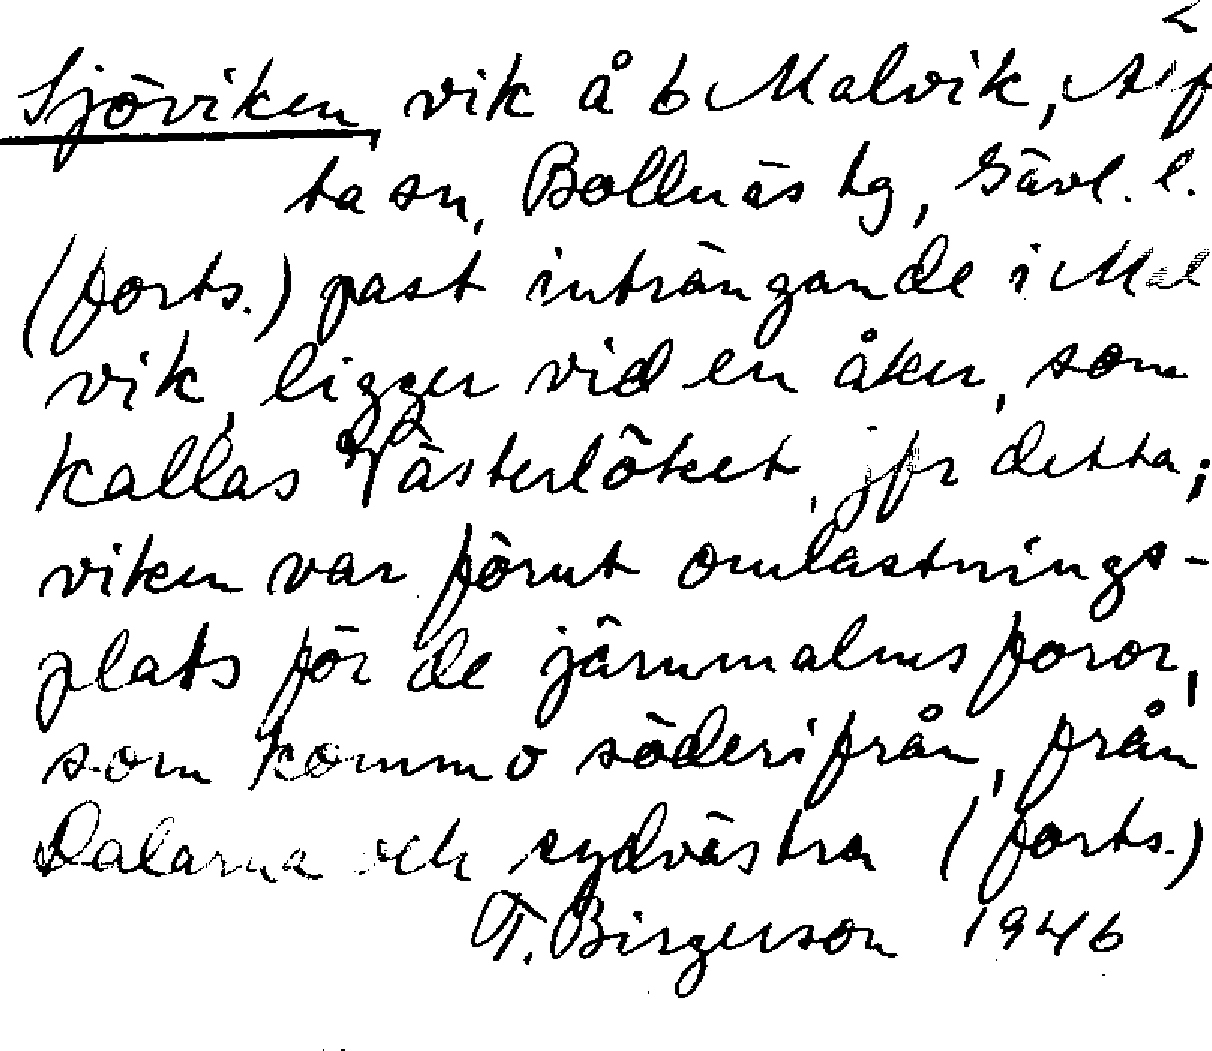 2
Sjöviken, vik å b Malvik, Alf
ta sn, Bollnäs tg, Gävl. l.
(forts.) past inträngande i Mal
vik, ligger vid en åker, som
kallas Västerlöket, jfr detta;
viken var förut omlastnings-
plats för de järnmalmsforor,
som kommo söderifrån, från
Dalarna och sydvästra (forts.)
T. Birgerson 1946